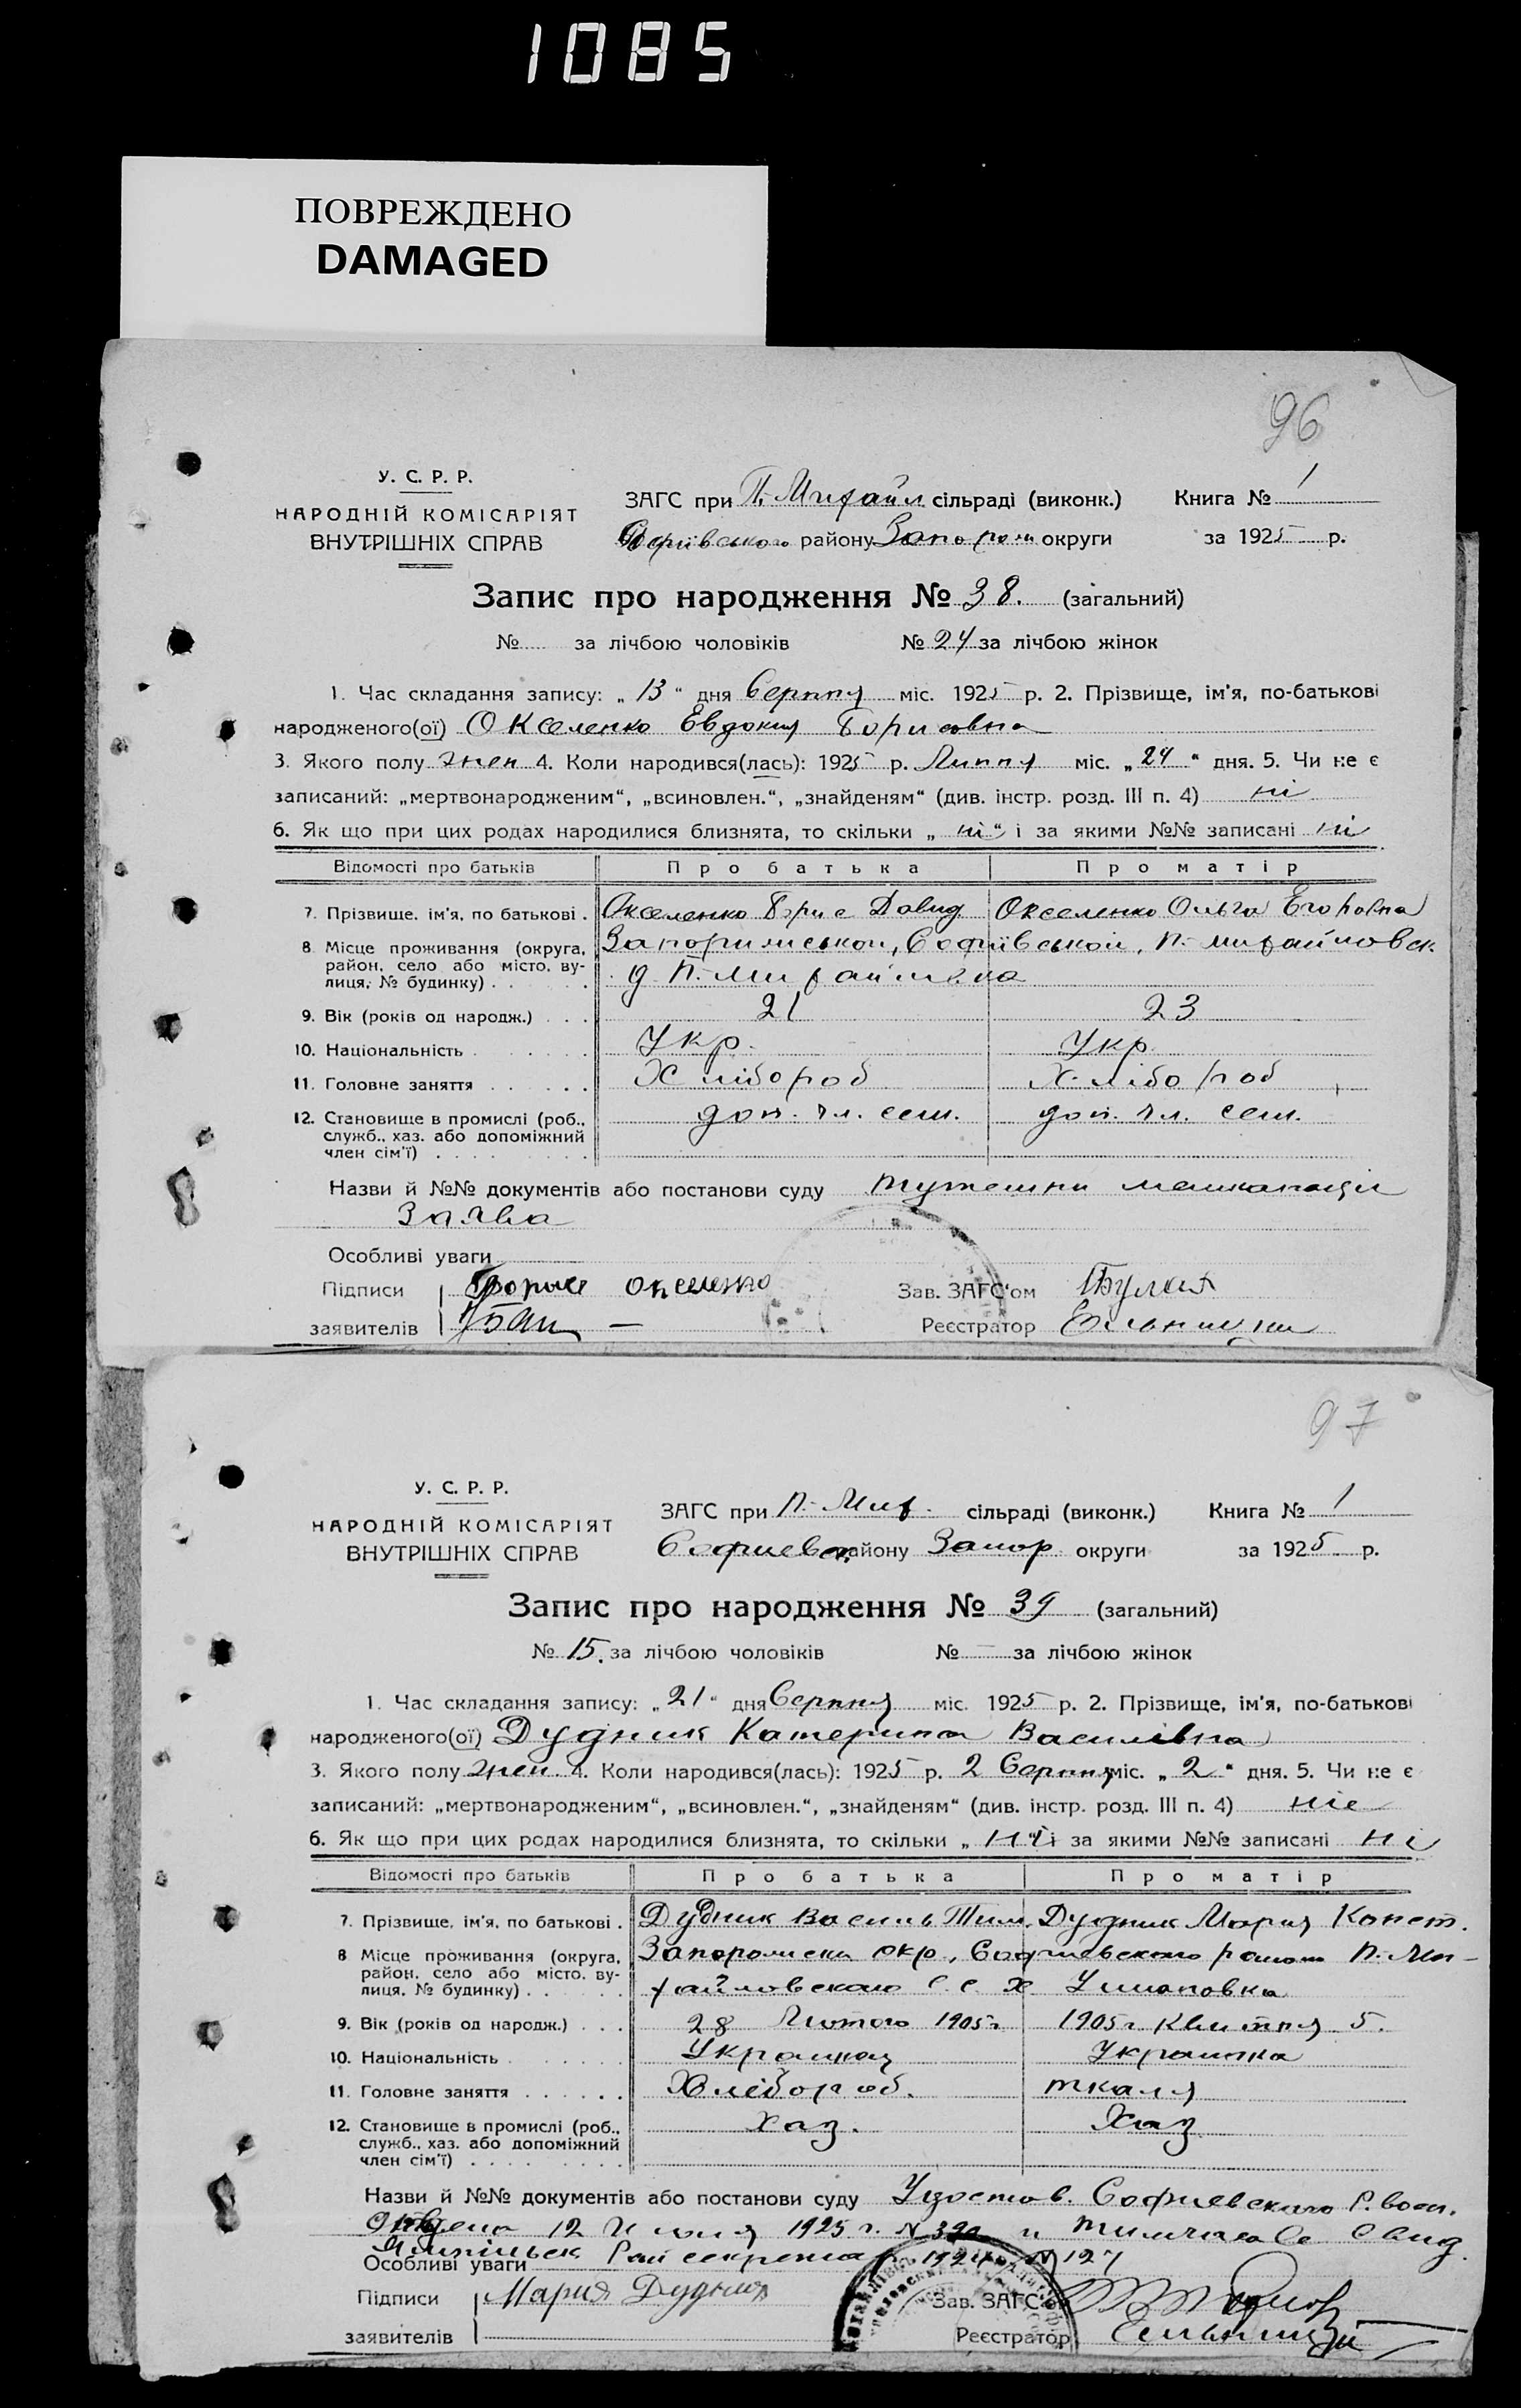 1085
ПОВРЕЖДЕНО
DAMAGED
96
У. С. Р. Р.
НАРОДНІЙ КОМІСАРІЯТ
ВНУТРІШНІХ СПРАВ
ЗАГС при П. Михайл. сільраді (виконк.) Книга № 1
Софіївського району Запориж округи за 1925 р.
Запис про народження № 38. (загальний)
№ за лічбою чоловіків № 24 за лічбою жінок
1. Час складання запису: „ 13 “ дня Серпня міс. 1925 р. 2. Прізвище, ім'я, по-батькові
народженого(ої) Окселенко Евдокия Борисовна
3. Якого полу жен 4. Коли народився(лась): 1925 р. Липня міс. „ 24 “ дня. 5. Чи не є
записаний: „мертвонародженим“, „всиновлен.“, „знайденям“ (див. інстр. розд. III п. 4) ні
6. Як що при цих родах народилися близнята, то скільки „ ні “ і за якими №№ записані ні
Відомості про батьків Про батька Про матір
7. Прізвище, ім'я, по батькові . Окселенко Борис Давид Окселенко Ольга Егоровна
8 Місце проживання (округа, Запорижської, Софіївської, П.-Михайловск.
район, село або місто, ву-
лиця, № будинку) . . . . . П. Михайлівка
9. Вік (років од народж.) . . . 21 23
10. Національність . . . . . . Укр. Укр.
11. Головне заняття . . . . . . Хлібороб Хлібороб
12. Становище в промислі (роб., доп. чл. сем. доп. чл. сем.
служб., хаз. або допоміжний
член сім'ї) . . . . . . . .
Назви й №№ документів або постанови суду тутешни мешканаци
Заява
Особливі уваги
Підписи Борыс Окселенко Зав. ЗАГС'ом
заявителів Реєстратор
97
У. С. Р. Р.
НАРОДНІЙ КОМІСАРІЯТ
ВНУТРІШНІХ СПРАВ
ЗАГС при П.-Мих. сільраді (виконк.) Книга № 1
Софиевск. району Запор округи за 1925 р.
Запис про народження № 39 (загальний)
№ 15. за лічбою чоловіків № — за лічбою жінок
1. Час складання запису: „ 21 “ дня Серпня міс. 1925 р. 2. Прізвище, ім'я, по-батькові
народженого(ої) Дудник Катерина Василівна
3. Якого полу жен. 4. Коли народився(лась): 1925 р. 2 Серпня міс. „ 2 “ дня. 5. Чи не є
записаний: „мертвонародженим“, „всиновлен.“, „знайденям“ (див. інстр. розд. III п. 4) ніе
6. Як що при цих родах народилися близнята, то скільки „ ні “ і за якими №№ записані ні
Відомості про батьків Про батька Про матір
7. Прізвище, ім'я, по батькові . Дудник Василь Тим. Дудник Мария Конст.
8 Місце проживання (округа, Запорожски окр., Софиевского району П.-Ми-
район, село або місто, ву-
лиця, № будинку) . . . . . хайловскаю с.с. х
9. Вік (років од народж.) . . . 28 Лютого 1905 г. 1905 г. Квитня 5.
10. Національність . . . . . . Украинец Украинка
11. Головне заняття . . . . . . Хлібороб. ткаля
12. Становище в промислі (роб., хаз. Хаз
служб., хаз. або допоміжний
член сім'ї) . . . . . . . .
Назви й №№ документів або постанови суду Удостов. Софиевского Р. воен.
12 Июля 1925 г. N и
Особливі уваги N 127
Підписи Мария Дудник Зав. ЗАГС'ом
заявителів Реєстратор